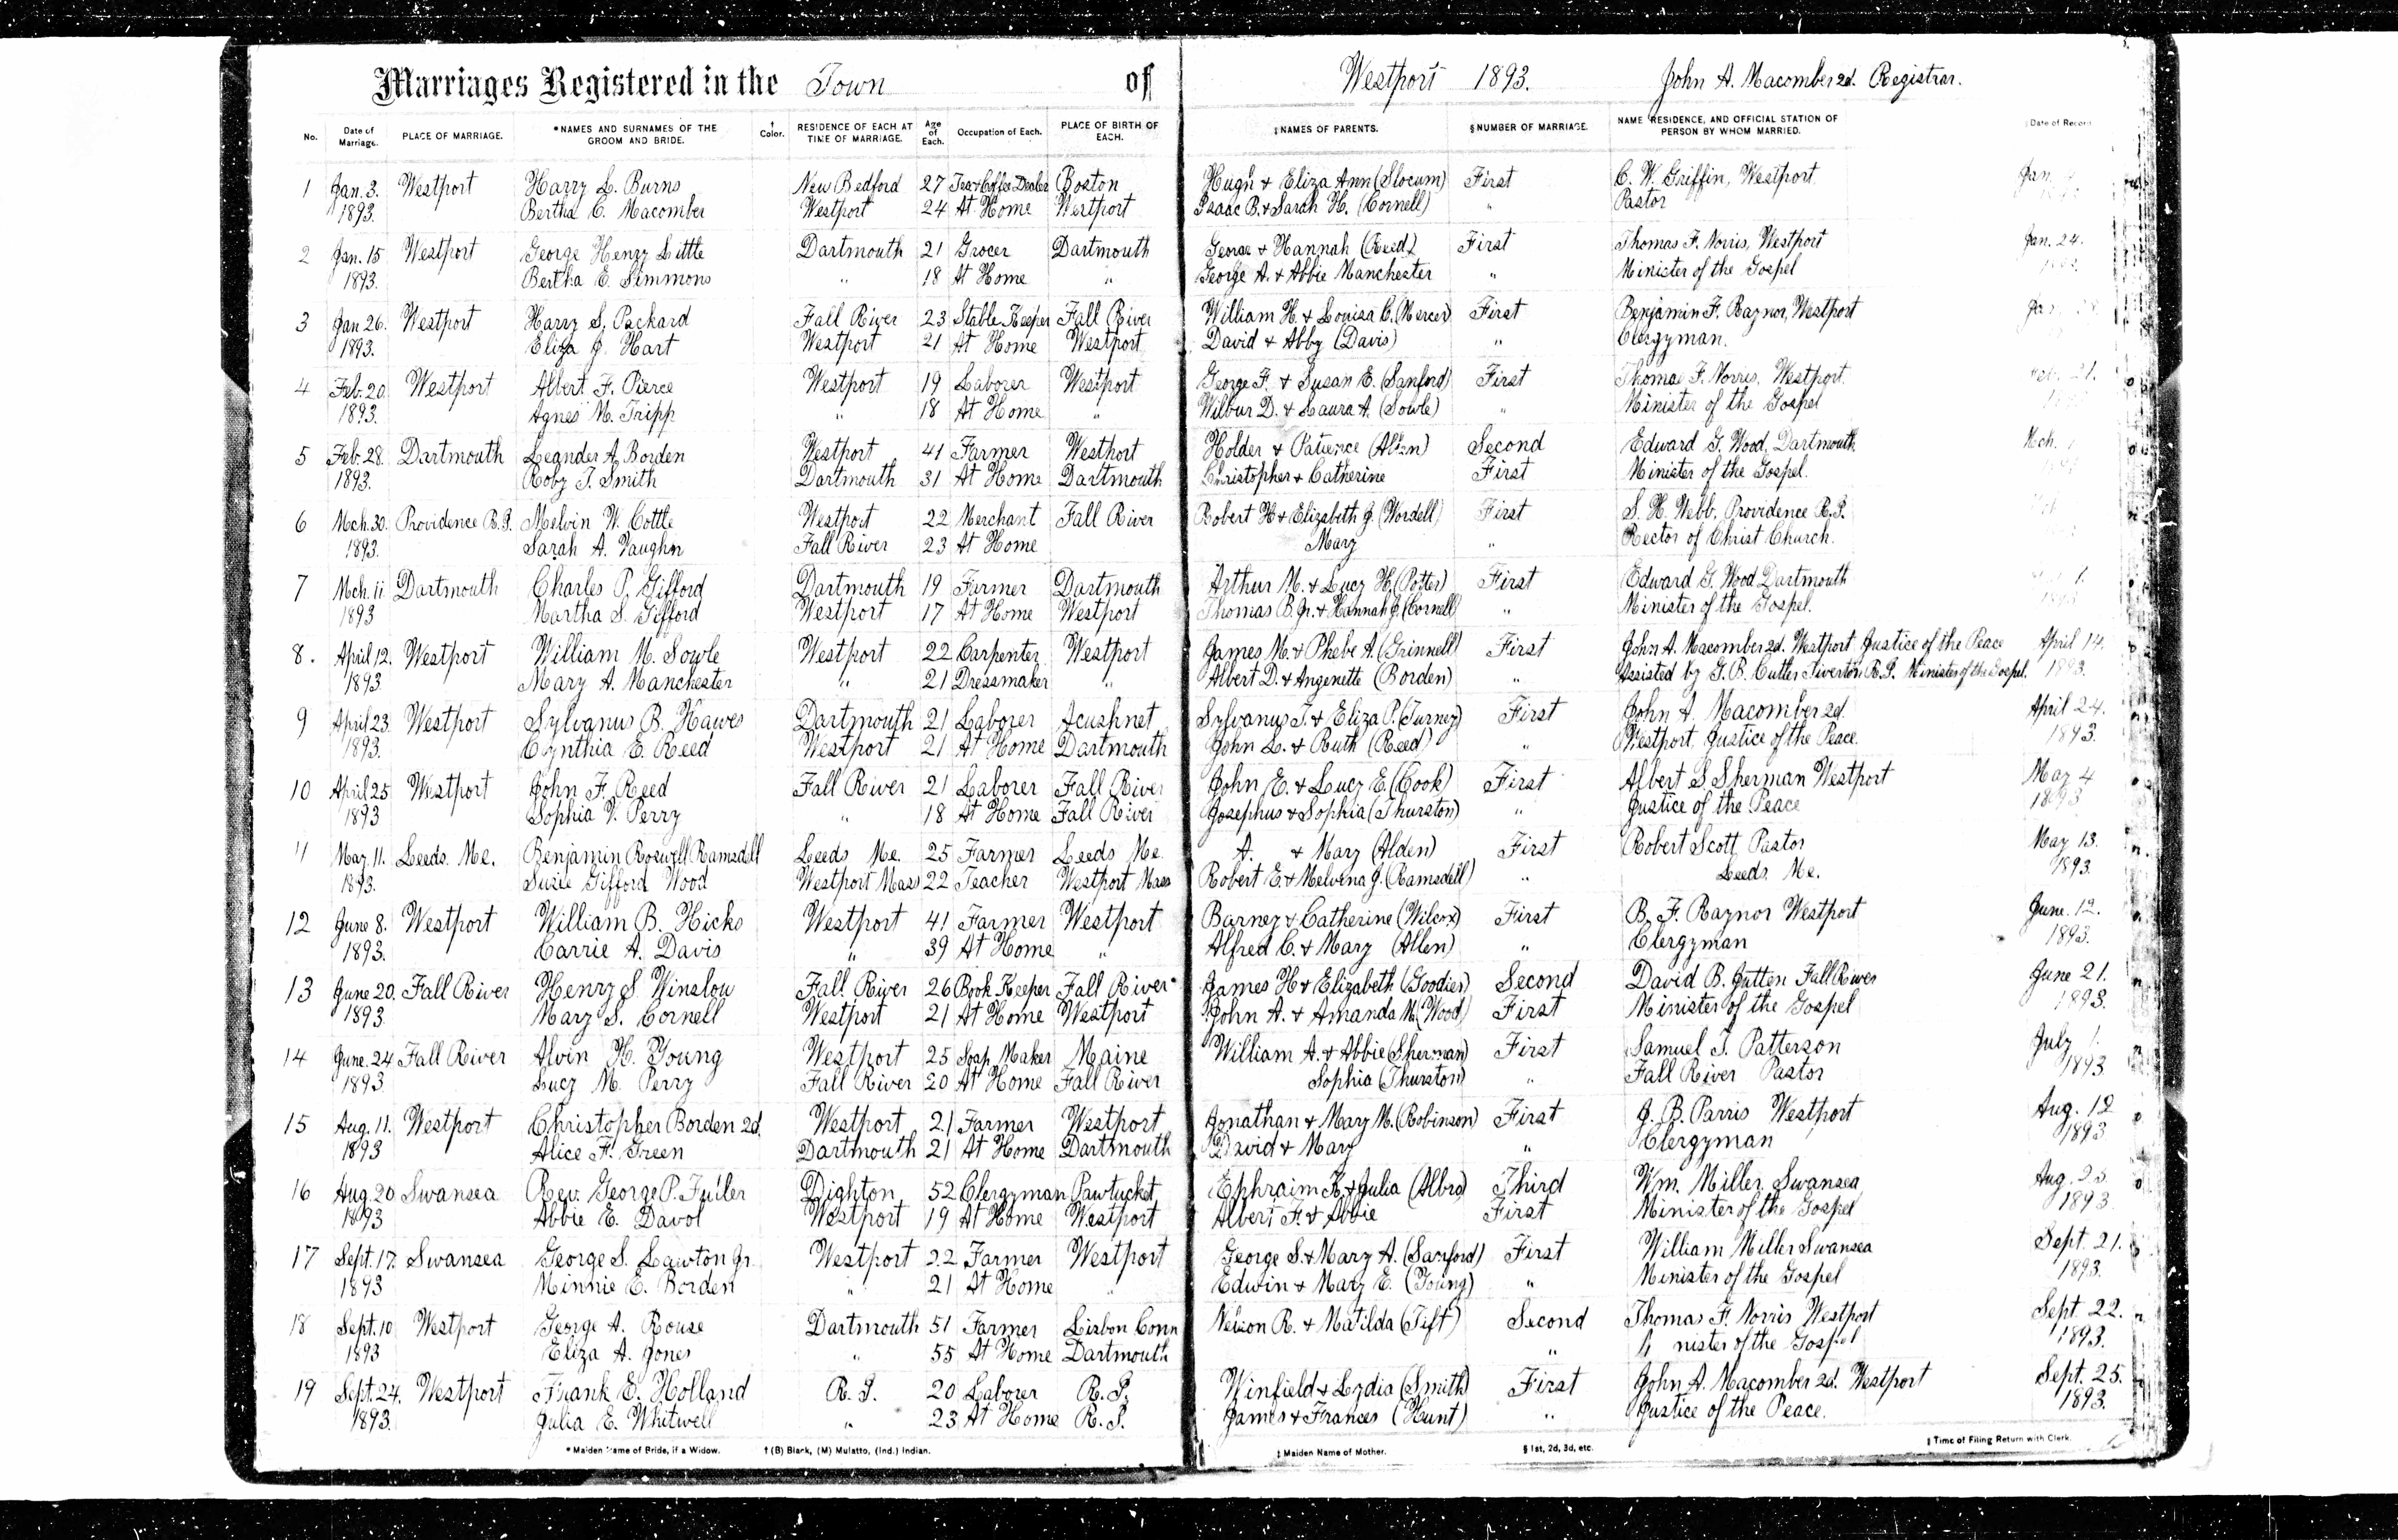 Marriages Registered in the Town of Westport 1893. John A. Macomber 2d. Registrar.
No. Date of Marriage. PLACE OF MARRIAGE. *NAMES AND SURNAMES OF THE GROOM AND BRIDE. † Color. RESIDENCE OF EACH AT TIME OF MARRIAGE. Age of Each. Occupation of Each. PLACE OF BIRTH OF EACH. ‡NAMES OF PARENTS. §NUMBER OF MARRIAGE. NAME RESIDENCE, AND OFFICIAL STATION OF PERSON BY WHOM MARRIED. ‖Date of Record
1 Jan. 3. Westport Harry L. Burns New Bedford 27 Tea & Coffee Dealer Boston Hugh & Eliza Ann (Slocum) First C. W. Griffin, Westport Jan.
1893. Bertha C. Macomber Westport 24 At Home Westport Isaac B. & Sarah H. (Cornell) " Pastor
2 Jan. 15 Westport George Henry Little Dartmouth 21 Grocer Dartmouth George & Hannah (Reed) First Thomas F. Norris, Westport Jan. 24.
1893. Bertha E. Simmons " 18 At Home " George A. & Abbie Manchester " Minister of the Gospel
3 Jan 26. Westport Harry S. Packard Fall River 23 Stable Keeper Fall River William H. & Louisa C. (Mercer) First Benjamin F. Raynor, Westport
1893. Eliza J. Hart Westport 21 At Home Westport David & Abby (Davis) " Clergyman.
4 Feb. 20 Westport Albert F. Pierce Westport 19 Laborer Westport George F. & Susan E. (Sanford) First Thomas F. Norris, Westport. Feb. 21.
1893. Agnes M. Tripp " 18 At Home " Wilbur D. & Laura A. (Sowle) " Minister of the Gospel
5 Feb. 28. Dartmouth Leander A. Borden Westport 41 Farmer Westport Holder & Patience (Allen) Second Edward G. Wood, Dartmouth. Mch.
1893. Roby T. Smith Dartmouth 31 At Home Dartmouth Christopher & Catherine First Minister of the Gospel.
6 Mch. 30. Providence R.I. Melvin W. Cottle Westport 22 Merchant Fall River Robert H & Elizabeth J. (Wordell) First S. H. Webb, Providence R.I.
1893. Sarah A. Vaughn Fall River 23 At Home Mary " Rector of Christ Church.
7 Mch. 11 Dartmouth Charles P. Gifford Dartmouth 19 Farmer Dartmouth Arthur M. & Lucy H. (Potter) First Edward G. Wood Dartmouth
1893 Martha S. Gifford Westport 17 At Home Westport Thomas B. Jr. & Hannah J. (Cornell) " Minister of the Gospel.
8. April 12. Westport William M. Sowle Westport 22 Carpenter Westport James M. & Phebe A. (Grinnell) First John A. Macomber 2d. Westport Justice of the Peace April 14.
1893. Mary A. Manchester " 21 Dressmaker " Albert D. & Angenette (Borden) " Assisted by G. B. Cutler Tiverton R.I. Minister of the Gospel. 1893.
9 April 23 Westport Sylvanus B. Hawes Dartmouth 21 Laborer Acushnet Sylvanus T. & Eliza P. (Turney) First John A. Macomber 2d April 24.
1893. Cynthia E. Reed Westport 21 At Home Dartmouth John L. & Ruth (Reed) " Westport, Justice of the Peace. 1893.
10 April 25 Westport John F. Reed Fall River 21 Laborer Fall River John E. & Lucy E. (Cook) First Albert S Sherman Westport May 4
1893 Sophia V. Perry " 18 At Home Fall River Josephus & Sophia (Thurston) " Justice of the Peace 1893
11 May. 11. Leeds. Me. Benjamin Roswell Ramsdell Leeds Me. 25 Farmer Leeds Me. A. & Mary (Alden) First Robert Scott, Pastor May 13.
1893. Susie Gifford Wood Westport Mass 22 Teacher Westport Mass Robert E. & Melvena J. (Ramsdell) " Leeds. Me. 1893.
12 June 8. Westport William B. Hicks Westport 41 Farmer Westport Barney & Catherine (Wilcox) First B. F. Raynor Westport June. 12.
1893. Carrie A. Davis " 39 At Home " Alfred C. & Mary (Allen) " Clergyman 1893.
13 June 20. Fall River Henry S. Winslow Fall River 26 Book Keeper Fall River James H & Elizabeth (Goodier) Second David B. Jutten Fall River June 21.
1893. Mary S. Cornell Westport 21 At Home Westport John A. & Amanda M. (Wood) First Minister of the Gospel 1893.
14 June. 24 Fall River Alvin H. Young Westport 25 Soap Maker Maine William A. & Abbie (Sherman) First Samuel T. Patterson July 1.
1893 Lucy M. Perry Fall River 20 At Home Fall River Sophia (Thurston) " Fall River Pastor 1893
15 Aug. 11. Westport Christopher Borden 2d. Westport 21 Farmer Westport Jonathan & Mary M. (Robinson) First J. B. Parris Westport Aug. 12
1893 Alice F. Green Dartmouth 21 At Home Dartmouth David & Mary " Clergyman 1893
16 Aug. 20 Swansea Rev. George P. Fuller Dighton 52 Clergyman Pawtucket Ephraim K. & Julia (Albro) Third Wm. Miller, Swansea Aug.
1893 Abbie E. Davol Westport 19 At Home Westport Albert F. & Abbie First Minister of the Gospel 1893
17 Sept. 17. Swansea George S. Lawton Jr. Westport 22 Farmer Westport George S. & Mary A. (Sanford) First William Miller Swansea Sept. 21.
1893 Minnie E. Borden " 21 At Home " Edwin & Mary E. (Young) " Minister of the Gospel 1893.
18 Sept. 10 Westport George A. Rouse Dartmouth 51 Farmer Lisbon Conn Nelson R. & Matilda (Tift) Second Thomas F. Norris Westport Sept 22.
1893 Eliza A. Jones " 55 At Home Dartmouth " nister of the Gospel 1893.
19 Sept. 24. Westport Frank E. Holland R.I. 20 Laborer R.I. Winfield & Lydia (Smith) First John A. Macomber 2d. Westport Sept. 25.
1893. Julia E. Whitwell " 23 At Home R.I. James & Frances (Hunt) " Justice of the Peace. 1893.
*Maiden Name of Bride, if a Widow. †(B) Black, (M) Mulatto, (Ind.) Indian. ‡Maiden Name of Mother. §1st, 2d, 3d, etc. ‖Time of Filing Return with Clerk.